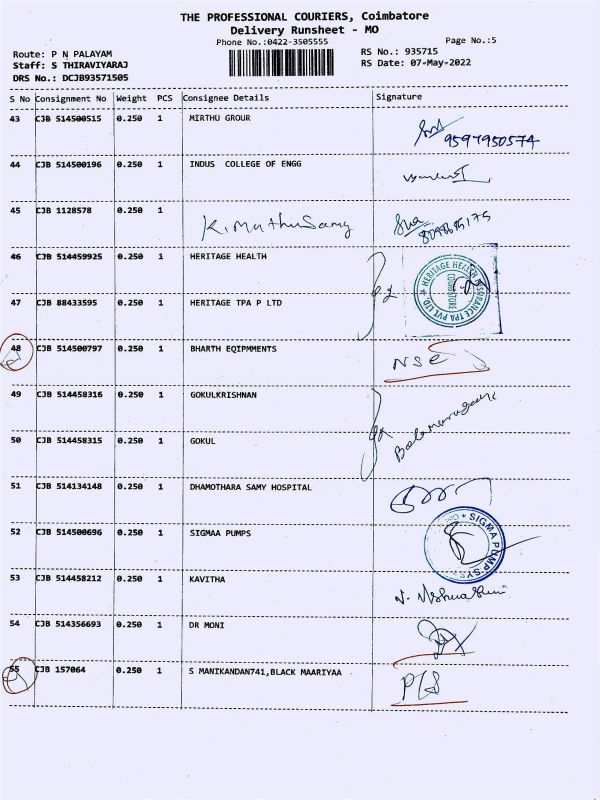 THE PROFESSIONAL COURIERS, Coimbatore
Delivery Runsheet - MO
Phone No.:0422-3505555
Page No.:5
Route: P N PALAYAM
RS No.: 935715
Staff: S THIRAVIYARAJ
RS Date: 07-May-2022
DRS No.: DCJB93571505
S No Consignment No Weight PCS Consignee Details Signature
43 CJB 514500515 0.250 1 MIRTHU GROUR
9597950574
44 CJB 514500196 0.250 1 INDUS COLLEGE OF ENGG
45 CJB 1128578 0.250 1 K. MuthuSamy
46 CJB 514459925 0.250 1 HERITAGE HEALTH
47 CJB 88433595 0.250 1 HERITAGE TPA P LTD
48 CJB 514500797 0.250 1 BHARTH EQIPMMENTS NSE
49 CJB 514458316 0.250 1 GOKULKRISHNAN
50 CJB 514458315 0.250 1 GOKUL
51 CJB 514134148 0.250 1 DHAMOTHARA SAMY HOSPITAL
52 CJB 514500696 0.250 1 SIGMAA PUMPS
SIGMA PUMP SYS
53 CJB 514458212 0.250 1 KAVITHA
54 CJB 514356693 0.250 1 DR MONI
55 CJB 157064 0.250 1 S MANIKANDAN741,BLACK MAARIYAA